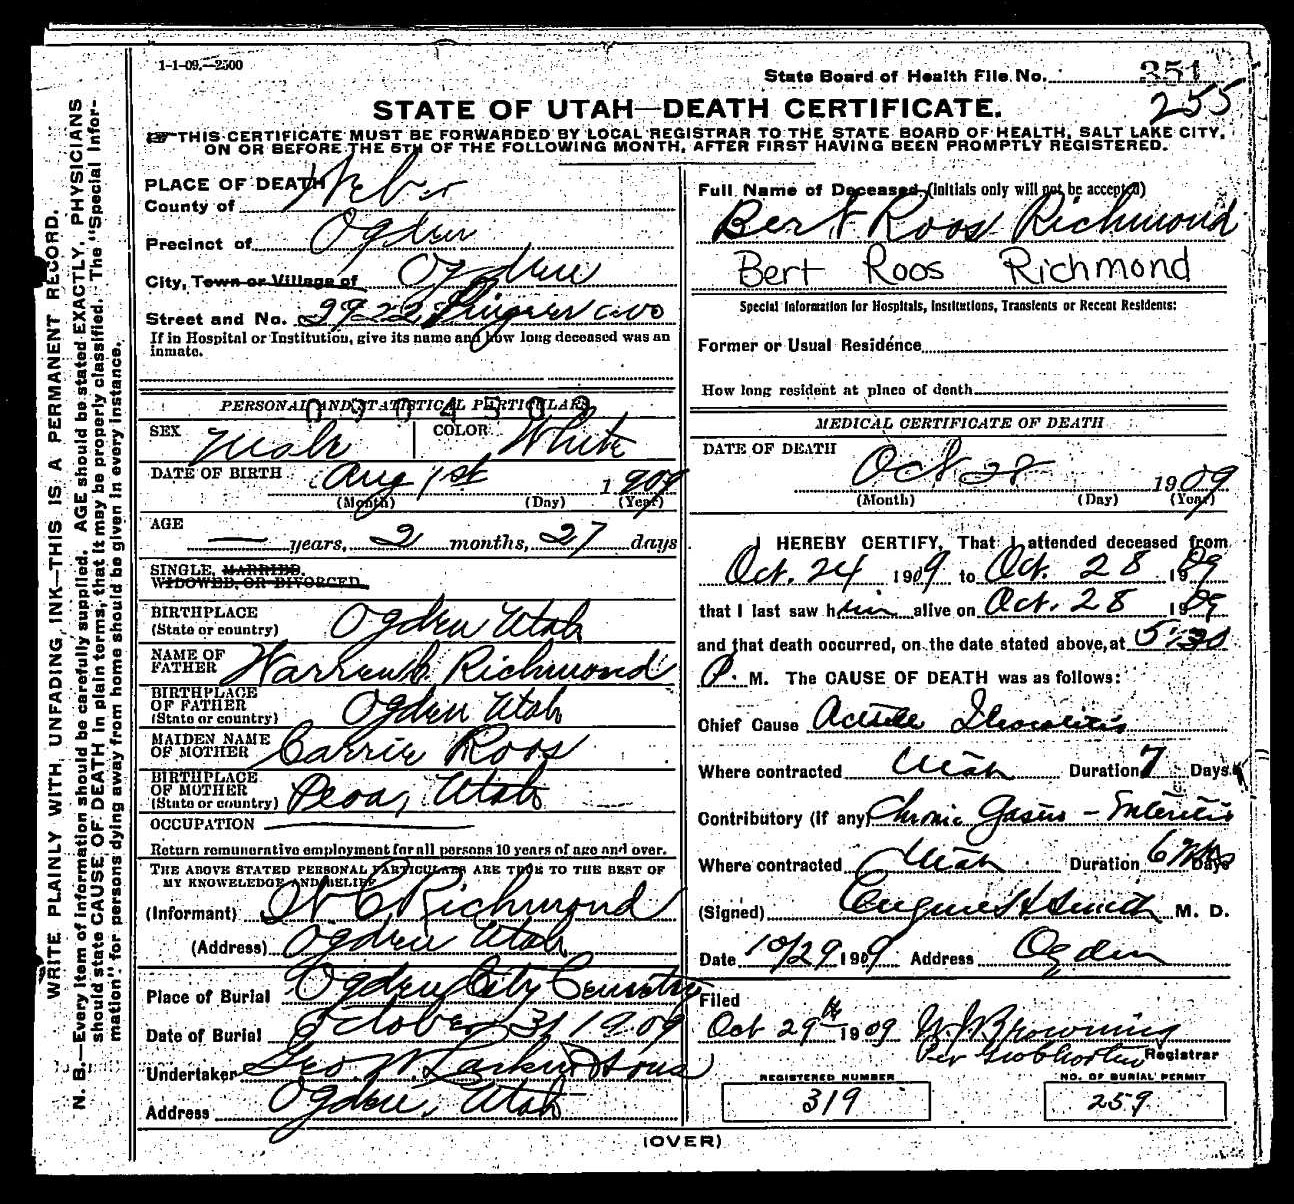 1-1-09.—2500
State Board of Health File No. 351
255
STATE OF UTAH—DEATH CERTIFICATE.
THIS CERTIFICATE MUST BE FORWARDED BY LOCAL REGISTRAR TO THE STATE BOARD OF HEALTH, SALT LAKE CITY,
ON OR BEFORE THE 5TH OF THE FOLLOWING MONTH, AFTER FIRST HAVING BEEN PROMPTLY REGISTERED.
WRITE PLAINLY WITH UNFADING INK—THIS IS A PERMANENT RECORD.
N. B.—Every item of information should be carefully supplied. AGE should be stated EXACTLY. PHYSICIANS
should state CAUSE OF DEATH in plain terms, that it may be properly classified. The "Special Infor-
mation" for persons dying away from home should be given in every instance.
PLACE OF DEATH
County of Weber
Precinct of Ogden
City, Town or Village of Ogden
Street and No. 2922 ave
If in Hospital or Institution, give its name and how long deceased was an
inmate.
PERSONAL AND STATISTICAL PARTICULARS
0904509
SEX Male COLOR White
DATE OF BIRTH Aug 1st 1909
(Month) (Day) (Year)
AGE — years, 2 months, 27 days
SINGLE, MARRIED,
WIDOWED, OR DIVORCED
BIRTHPLACE
(State or country) Ogden Utah
NAME OF
FATHER Warren C. Richmond
BIRTHPLACE
OF FATHER
(State or country) Ogden Utah
MAIDEN NAME
OF MOTHER Carrie Roos
BIRTHPLACE
OF MOTHER
(State or country) Peoa, Utah
OCCUPATION
Return remunerative employment for all persons 10 years of age and over.
THE ABOVE STATED PERSONAL PARTICULARS ARE TRUE TO THE BEST OF
MY KNOWELEDGE AND BELIEF
(Informant) W C Richmond
(Address) Ogden Utah
Place of Burial Ogden City Cemetery
Date of Burial October 31 1909
Undertaker Geo. W. Larkin & Sons
Address Ogden, Utah
Full Name of Deceased (initials only will not be accepted)
Bert Roos Richmond
Bert Roos Richmond
Special Information for Hospitals, Institutions, Transients or Recent Residents:
Former or Usual Residence
How long resident at place of death
MEDICAL CERTIFICATE OF DEATH
DATE OF DEATH
Oct 28 1909
(Month) (Day) (Year)
I HEREBY CERTIFY, That I attended deceased from
Oct. 24 1909 to Oct. 28 1909
that I last saw him alive on Oct. 28 1909
and that death occurred, on the date stated above, at 5:30
P. M. The CAUSE OF DEATH was as follows:
Chief Cause Acute Ileocolitis
Where contracted Utah Duration 7 Days
Contributory (If any) Chronic Gastro-Enteritis
Where contracted Utah Duration 6 wks Days
(Signed) Eugene H Smith M. D.
Date 10/29 1909 Address Ogden
Filed
Oct 29th 1909 Browning
Per Registrar
REGISTERED NUMBER
319
NO. OF BURIAL PERMIT
259
(OVER)